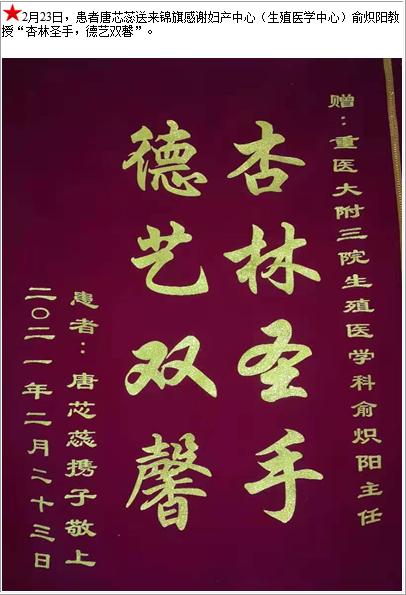 2月23日，患者唐芯蕊送来锦旗感谢妇产中心（生殖医学中心）俞炽阳教
授“杏林圣手，德艺双馨”。
赠：重医大附三院生殖医学科俞炽阳主任
杏林圣手
德艺双馨
患者：唐芯蕊携子敬上
二〇二一年二月二十三日